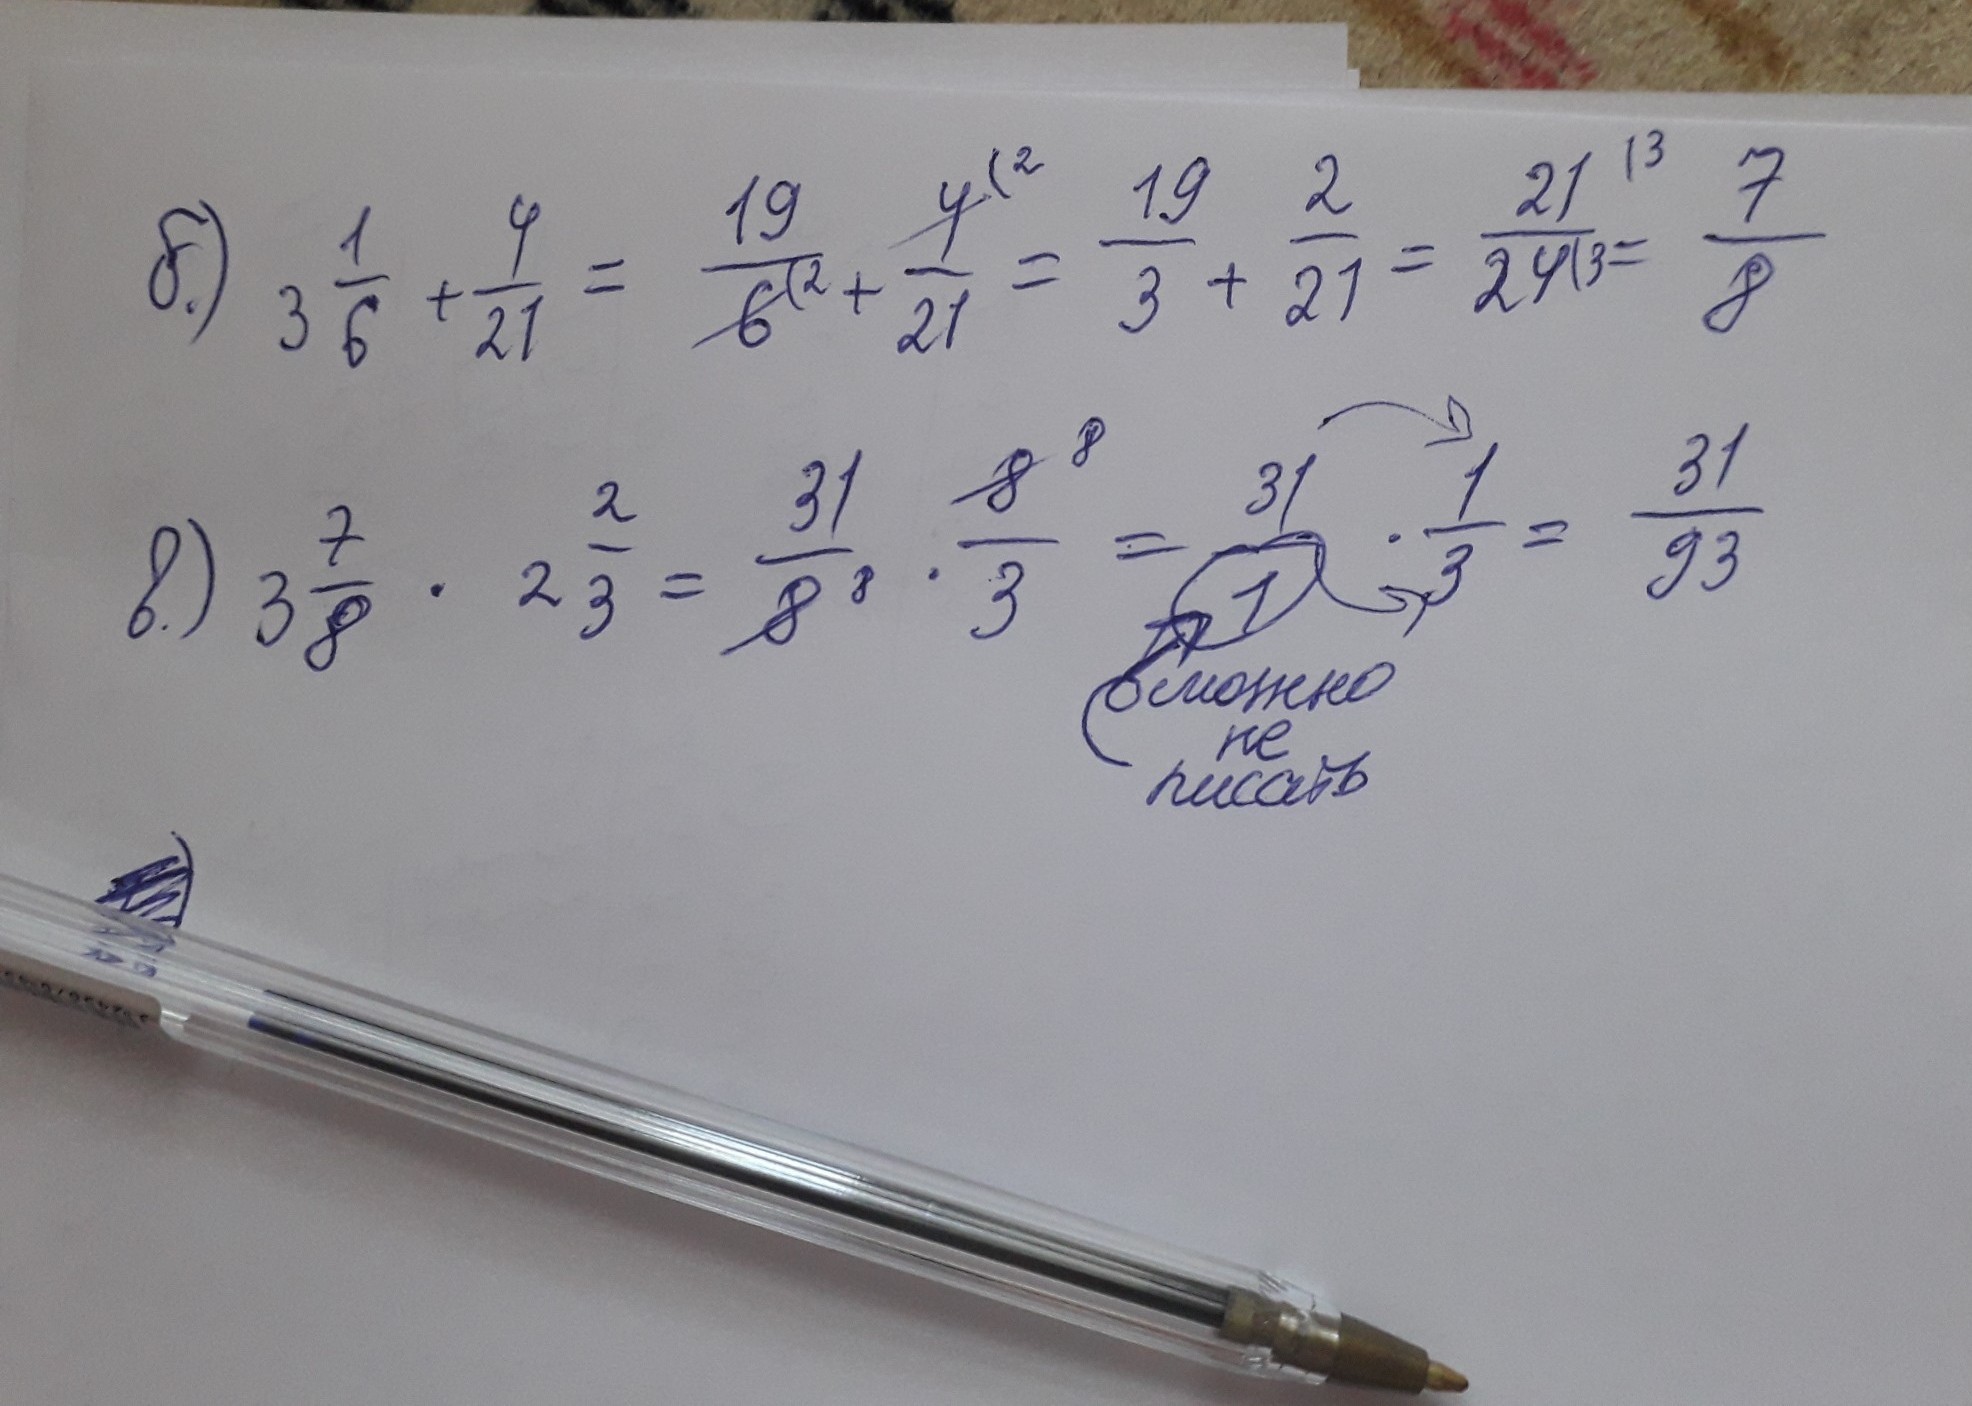 б.) 3 1/6 + 4/21 = 19/6(2 + 4(2/21 = 19/3 + 2/21 = 21(3/24(3 = 7/8
в.) 3 7/8 · 2 2/3 = 31/8 8 · 8 8/3 = 31/1 · 1/3 = 31/93
можно
не
писать